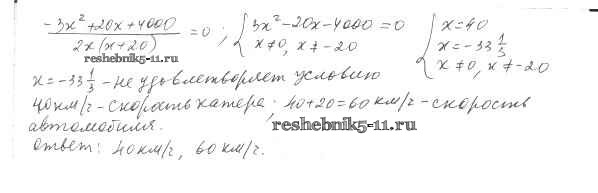 (-3x²+20x+4000)/(2x(x+20)) = 0 ; { 3x²-20x-4000=0 { x=40
x≠0, x≠-20 x=-33 1/3
reshebnik5-11.ru x≠0, x≠-20
x=-33 1/3 - не удовлетворяет условию
40км/г-скорость катера; 40+20=60 км/г-скорость
автомобиля. reshebnik5-11.ru
ответ: 40км/г, 60 км/г.